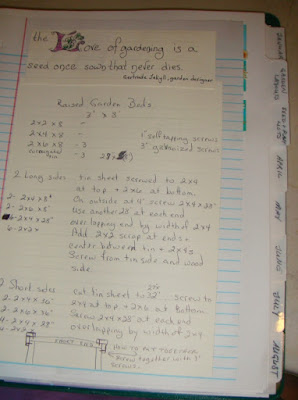 the Love of gardening is a
seed once sown that never dies.
Gertrude Jekyll, garden designer
Raised Garden Beds
2' x 8'
2 x 2 x 8 -
2 x 4 x 8 - 1" self tapping screws
2 x 6 x 8 - 3 3" galvanized screws
corrugated tin - 3
2 Long sides tin sheet screwed to 2x4
at top + 2x6 at bottom.
2 - 2x4 x 8' On outside at 4' screw 2x4x28"
2 - 2x6 x 8' Use another 28" at each end
6 - 2x4x28" overlapping end by width of 2x4
6 - 2x2x Add 2x2 scrap at ends +
center between tin + 2x4s
Screw from tin side and wood
side.
2 Short sides cut tin sheet to 32" screw to
2 - 2x4 x 36" 2x4 at top + 2x6 at bottom
2 - 2x6 x 36" Screw 2x4x28" at each end
4 - 2x4 x 28" overlapping by width of 2x4
4 - 2x2
FRONT END
screw together with 1"
screws.
APRIL
MAY
JUNE
JULY
AUGUST